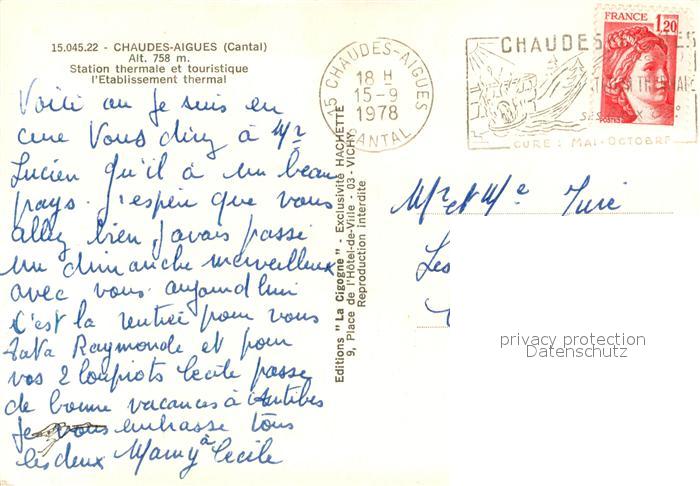 15.045.22 - CHAUDES-AIGUES (Cantal)
Alt. 758 m.
Station thermale et touristique
l'Etablissement thermal
Voili ou je suis en
cure Vous direz à Mr
Lucien qu'il à un beau
pays. j'espère que vous
allez bien j'avais passé
un dimanche merveilleux
avec vous aujourd'hui
c'est la rentrée pour vous
Tata Raymonde et pour
vos 2 loupiots Cecile passe
de bonne vacances à Antibes
Je vous embrasse tous
les deux Mamy à Cecile
Editions "La Cigogne" - Exclusivité HACHETTE
9, Place de l'Hôtel-de-Ville - 03 - VICHY
Reproduction interdite
15 CHAUDES-AIGUES
18 H
15-9
1978
CANTAL
CHAUDES
CURE : MAI-OCTOBRE
FRANCE 1,20
POSTES
Mr et Me
Les
privacy protection
Datenschutz